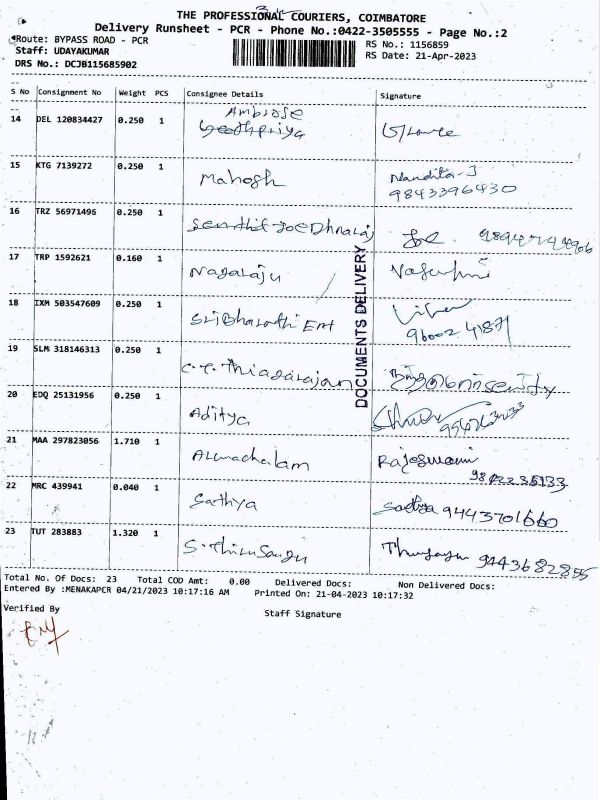 THE PROFESSIONAL COURIERS, COIMBATORE
Delivery Runsheet - PCR - Phone No.:0422-3505555 - Page No.:2
Route: BYPASS ROAD - PCR
RS No.: 1156859
Staff: UDAYAKUMAR
RS Date: 21-Apr-2023
DRS No.: DCJB115685902
S No Consignment No Weight PCS Consignee Details Signature
14 DEL 120834427 0.250 1 Ambrose
15 KTG 7139272 0.250 1 Mahosh Nandita-J
9843396430
16 TRZ 56971496 0.250 1 Senthil Joe Dhnaraj Joe
17 TRP 1592621 0.160 1 Nagaraju
18 IXM 503547609 0.250 1 Sri Bharathi Ent
96002 41871
19 SLM 318146313 0.250 1 C.T. Thiagarajan
20 EDQ 25131956 0.250 1 Aditya
21 MAA 297823056 1.710 1 Arunachalam Rajeswari
22 MRC 439941 0.040 1 Sathya Sathya 9443701660
23 TUT 283883 1.320 1 9443682855
DOCUMENTS DELIVERY
Total No. Of Docs: 23 Total COD Amt: 0.00 Delivered Docs: Non Delivered Docs:
Entered By :MENAKAPCR 04/21/2023 10:17:16 AM Printed On: 21-04-2023 10:17:32
Verified By
Staff Signature